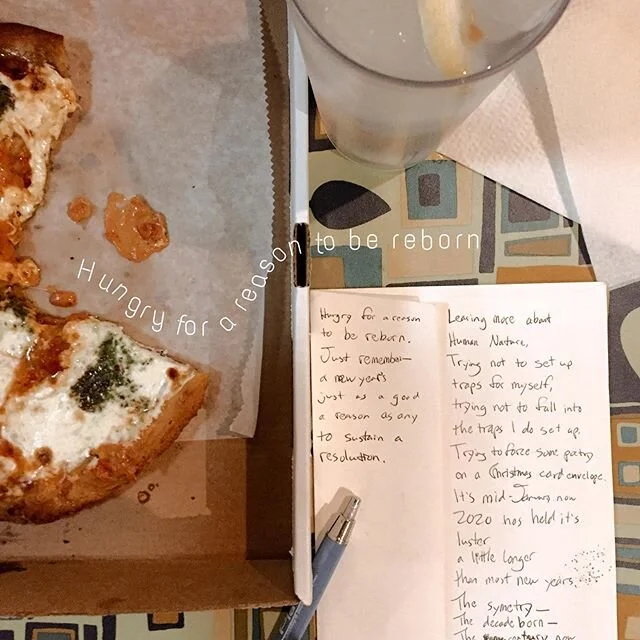 Hungry for a reason to be reborn
Hungry for a reason
to be reborn.
Just remember—
a new year's
just as a good
a reason as any
to sustain a
resolution.
Leaving more about
Human Nature,
Trying not to set up
traps for myself,
trying not to fall into
the traps I do set up.
Trying to force some poetry
on a Christmas card envelope.
It's mid-January now
2020 has held it's
luster
a little longer
than most new years.
The symetry—
The decade born—
The now